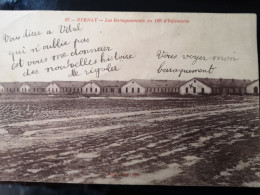 EPERNAY — Les Baraquements du 106e d'Infanterie
Vous direz a Vital
qui n'oublie pas
et vous me donneri
des nouvelles histoire
de rigoler
Vous voyer mon
baraquement